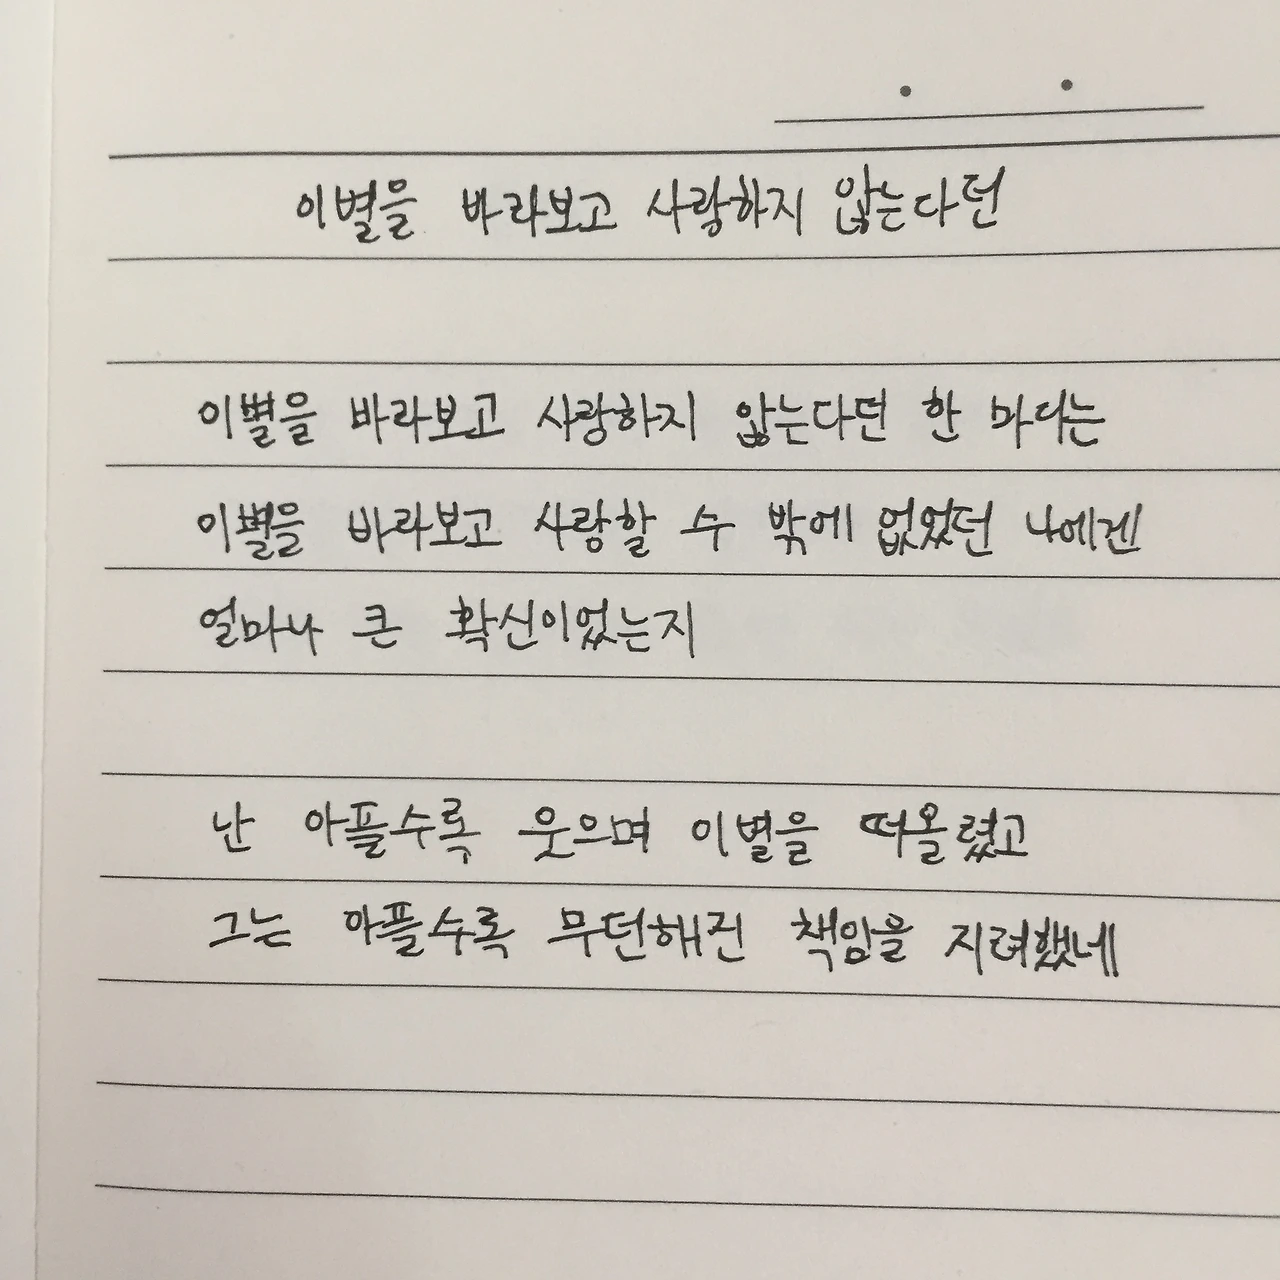 이별을 바라보고 사랑하지 않는다던
이별을 바라보고 사랑하지 않는다던 한 마디는
이별을 바라보고 사랑할 수 밖에 없었던 나에겐
얼마나 큰 확신이었는지
난 아플수록 웃으며 이별을 떠올렸고
그는 아플수록 무던해진 책임을 지려했네